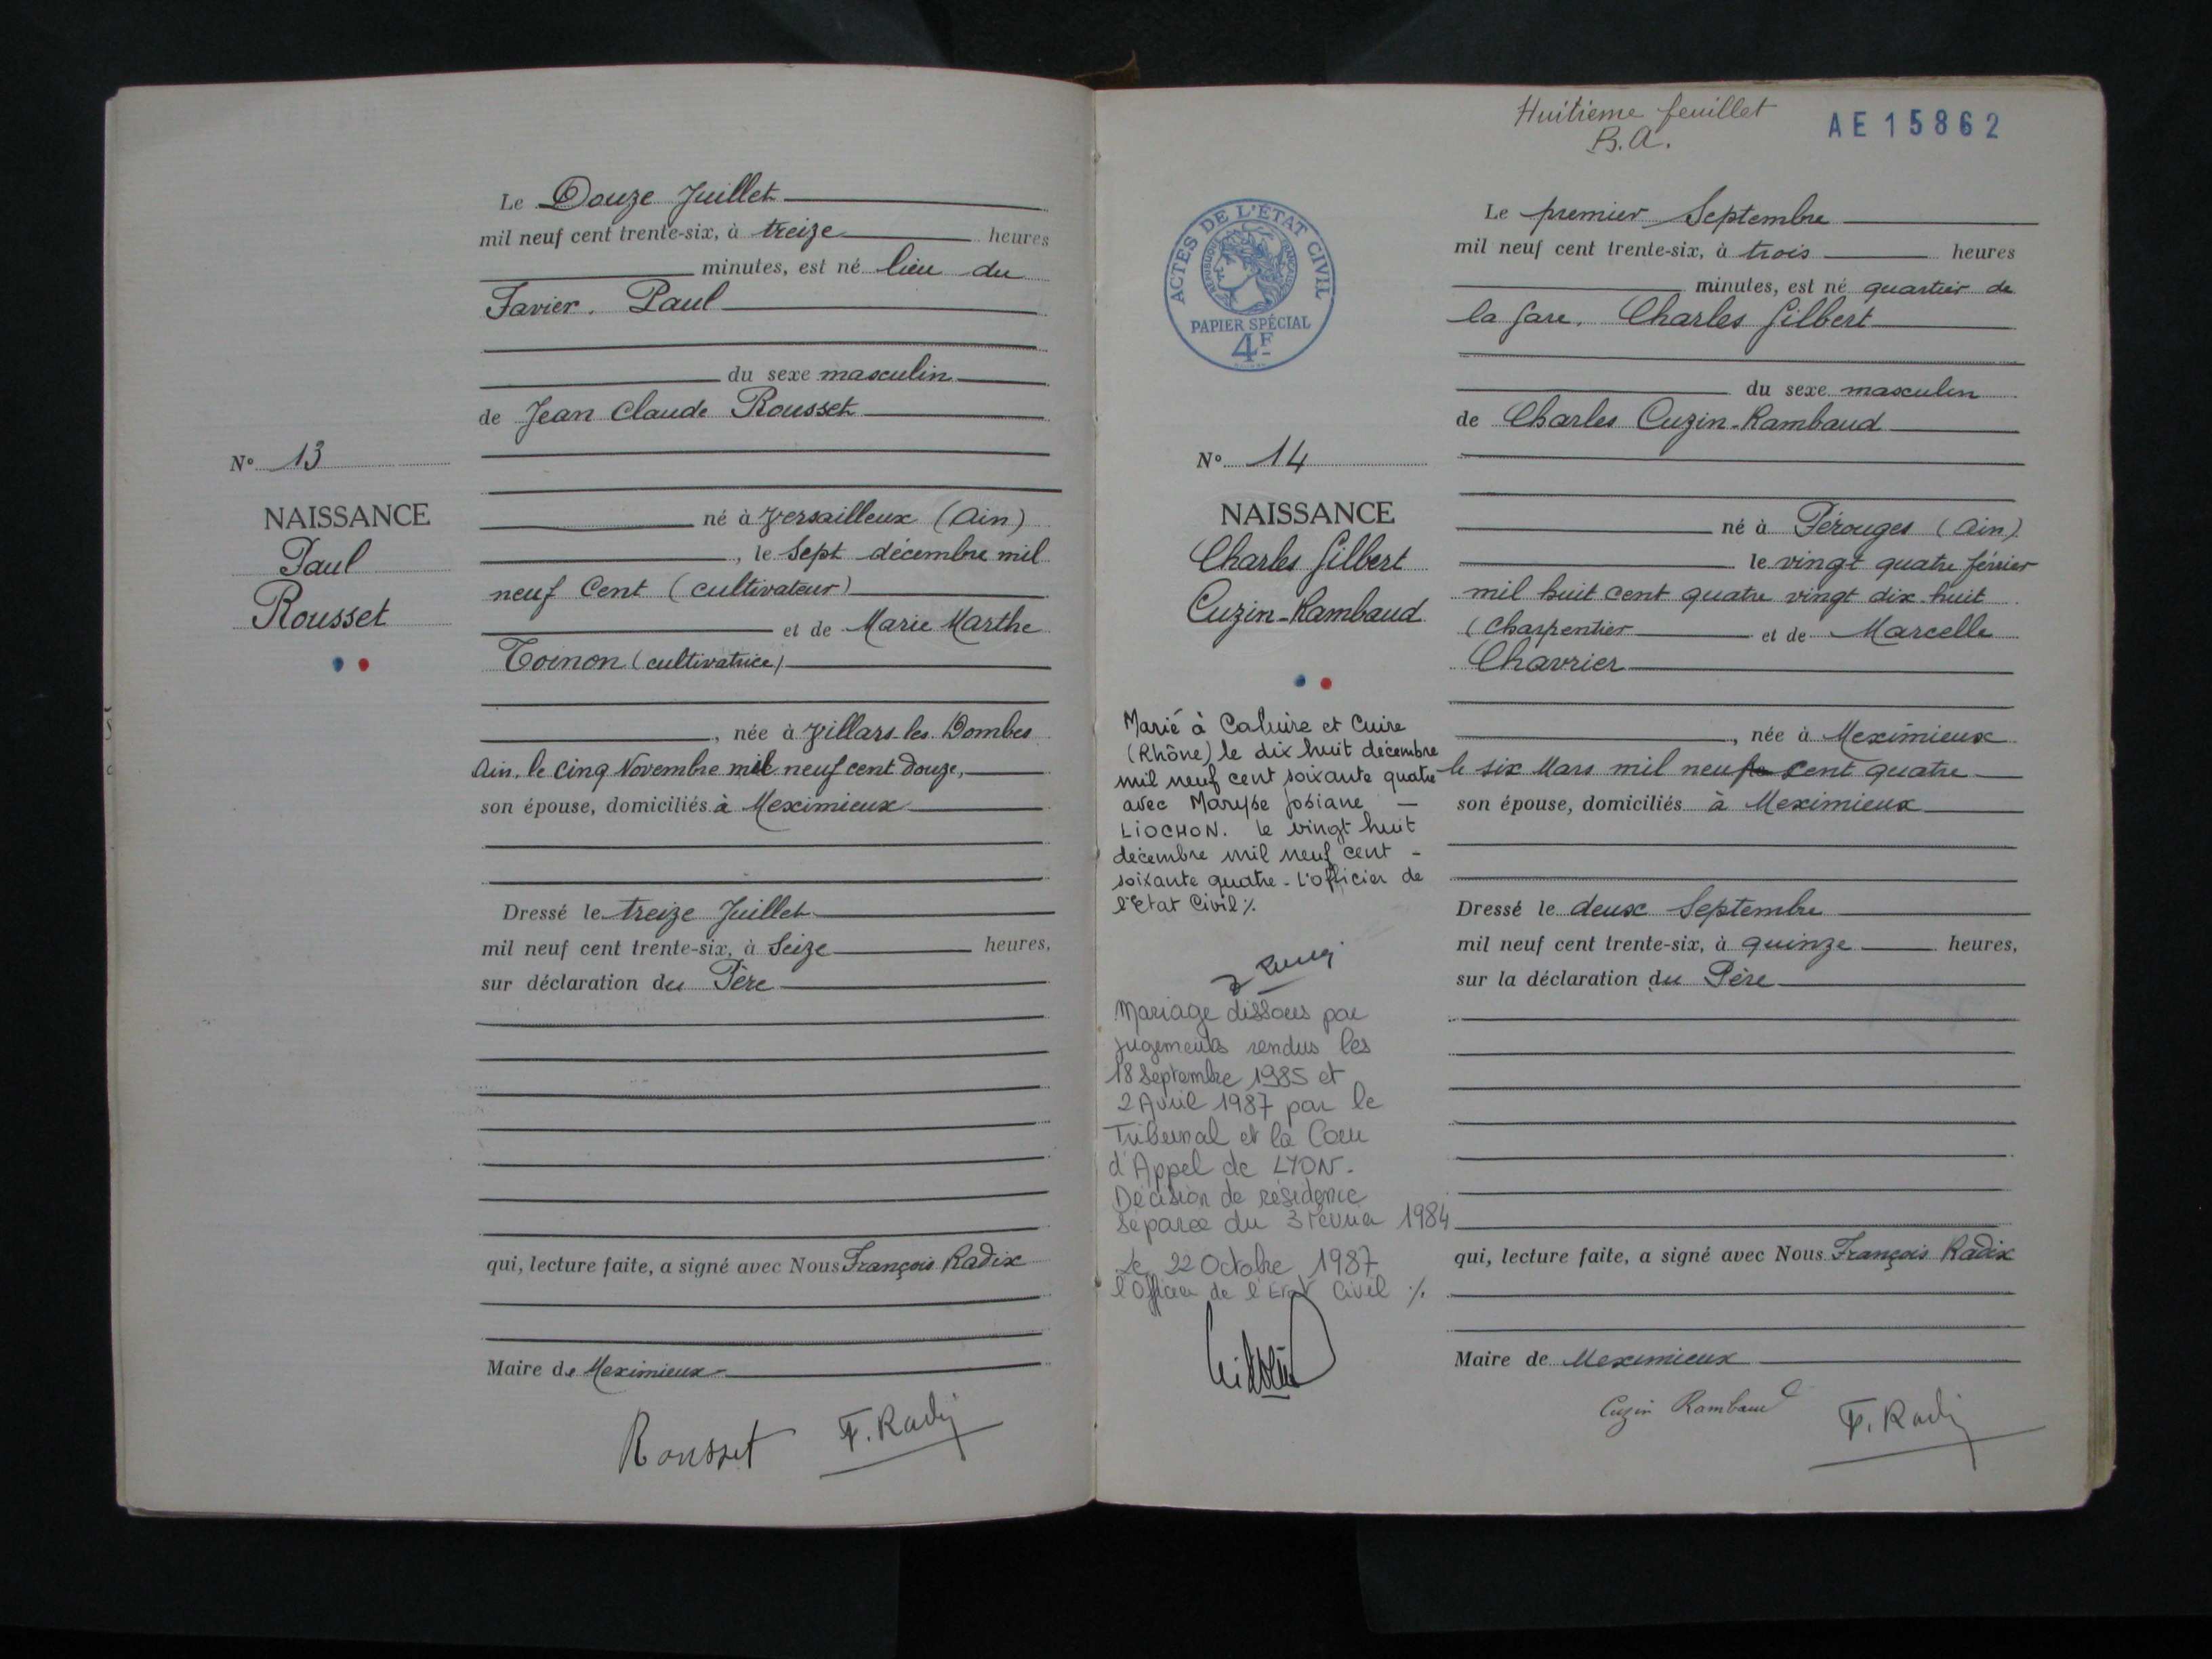 Le Douze Juillet
mil neuf cent trente-six, à treize heures
minutes, est né lieu du
Favier. Paul
du sexe masculin
de Jean Claude Rousset
N° 13
NAISSANCE
Paul
Rousset
né à Versailleux (Ain)
, le sept décembre mil
neuf Cent (cultivateur)
et de Marie Marthe
Toinon (cultivatrice)
, née à Villars les Dombes
Ain, le cinq Novembre mil neuf cent douze,
son épouse, domiciliés à Meximieux
Dressé le treize Juillet
mil neuf cent trente-six, à Seize heures,
sur déclaration du Père
qui, lecture faite, a signé avec Nous François Radix
Maire de Meximieux
Rousset F. Radix
Huitième feuillet
B.A.
AE15862
ACTES DE L'ÉTAT CIVIL
RÉPUBLIQUE FRANÇAISE
PAPIER SPÉCIAL
4F
Le premier Septembre
mil neuf cent trente-six, à trois heures
minutes, est né quartier de
la Gare. Charles Gilbert
du sexe masculin
de Charles Cuzin-Rambaud
N° 14
NAISSANCE
Charles Gilbert
Cuzin-Rambaud
né à Pérouges (Ain)
le vingt quatre février
mil huit cent quatre vingt dix huit
(Charpentier et de Marcelle
Chavrier
, née à Meximieux
le six Mars mil neuf cent quatre
son épouse, domiciliés à Meximieux
Dressé le deux Septembre
mil neuf cent trente-six, à quinze heures,
sur la déclaration du Père
qui, lecture faite, a signé avec Nous François Radix
Maire de Meximieux
Cuzin Rambaud F. Radix
Marié à Caluire et Cuire
(Rhône) le dix huit décembre
mil neuf cent soixante quatre
avec Maryse Josiane —
LIOCHON. le vingt huit
décembre mil neuf cent -
soixante quatre - L'officier de
l'Etat Civil %
Mariage dissous par
jugements rendus les
18 Septembre 1985 et
2 Avril 1987 par le
Tribunal et la Cour
d'Appel de LYON.
Décision de résidence
séparée du 3 Février 1984
Le 22 Octobre 1987
l'Officier de l'Etat Civil %